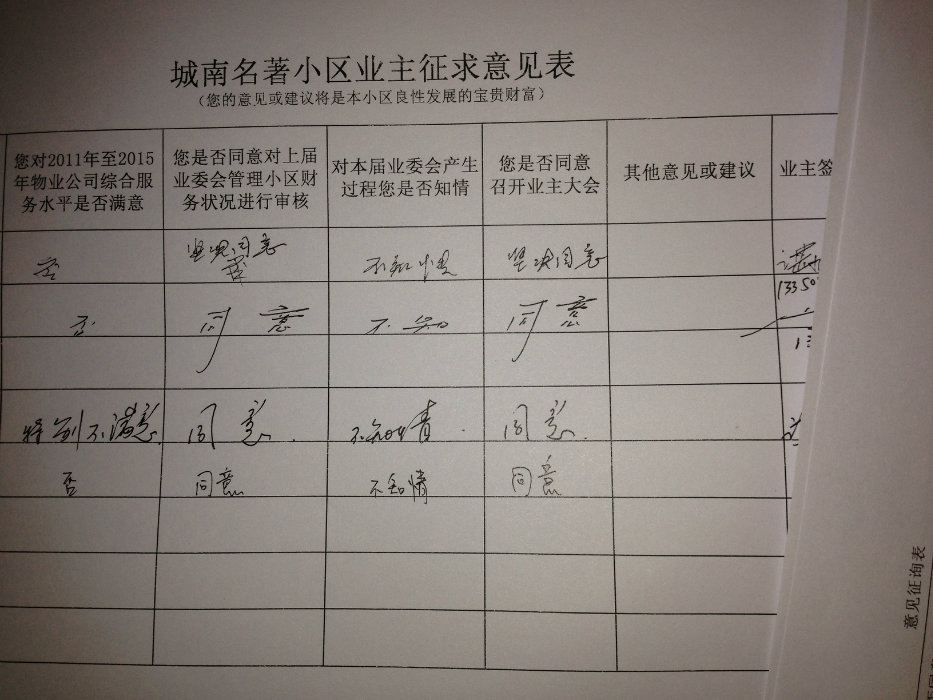 城南名著小区业主征求意见表
（您的意见或建议将是本小区良性发展的宝贵财富）
您对2011年至2015年物业公司综合服务水平是否满意 您是否同意对上届业委会管理小区财务状况进行审核 对本届业委会产生过程您是否知情 您是否同意召开业主大会 其他意见或建议 业主签
否 坚决同意 不知情 坚决同意
1350
否 同意 不知 同意
特别不满意. 同意. 不知情. 同意.
否 同意 不知情 同意
意见征询表